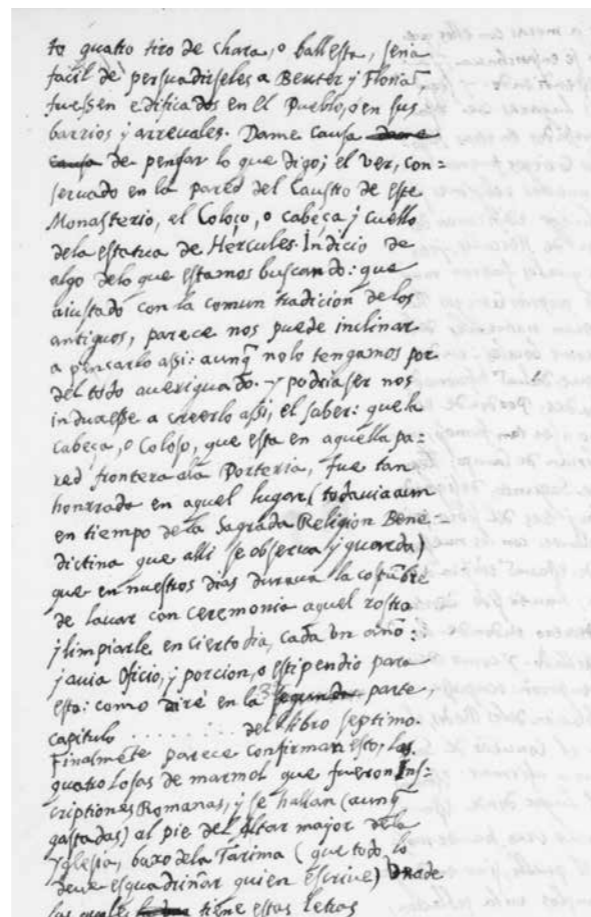 to quatro tiro de chara, o ballesta, seria
facil de persuadirseles a Beuter y Floriã
fuessen edificados en el Pueblo, o en sus
barrios y arrevales. Dame causa dame
causa de pensar lo que digo; el ver, con=
servado en la pared del Caustro de este
Monasterio, el Coloso, o cabeça y cuello
dela estatua de Hercules. Indicio de
algo delo que estamos buscando: que
aiustado con la comun tradicion delos
antiguos, parece nos puede inclinar
a pensarlo assi: aunq̃ nolo tengamos por
del todo averiguado. y podria ser nos
induxesse a creerlo assi, el saber: que la
cabeça, o Coloso, que esta en aquella pa=
red frontera ala Porteria, fue tan
honrrada en aquel lugar (todavia aun
en tiempo de la Sagrada Religion Bene=
dictina que alli se observa y guarda)
que en nuestros dias durava la costũbre
de lavar con ceremonia aquel rostro
y limpiarle en cierto dia, cada un año:
y avia Oficio, y porcion, o estipendio para
esto: como diré en la 3ª segunda parte,
capitulo . . . . . . . . . del libro septimo.
Finalmẽte parece confirman esto, las
quatro losas de marmol que fueron Ins=
criptiones Romanas, y se hallan (aunq̃
gastadas) al pie del Altar major dela
Yglesia, baxo dela Tarima (que todo lo
deve esquadriñar quien escrive) Unade
las quales tiene estas letras